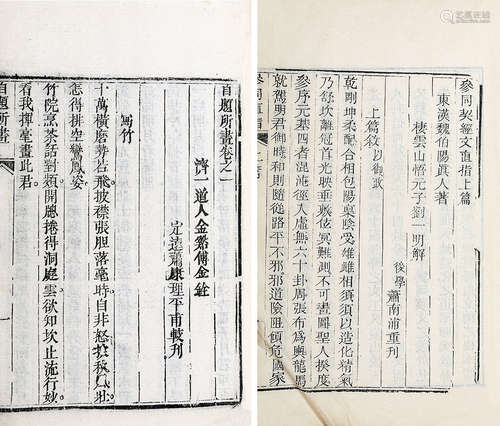 參同契經文直指上篇
東漢魏伯陽眞人著
棲雲山悟元子劉一明解
後學 蕭南浦重刊
上篇敘以御政
乾剛坤柔配合相包陽稟陰受雄雌相須須以造化精氣
乃舒坎離冠首光映垂敷玄冥難測不可畫圖聖人揆度
參序元基四者混沌徑入虛無六十卦周張布爲輿龍馬
就駕明君御時和則隨從路平不邪邪道險阻傾危國家
自題所畫卷之一
濟一道人金谿傅金銓
定遠蕭康理平甫較刊
寫竹
十萬橫磨勢若飛披襟張胆落毫時自非怒
怎得排空鸞鳳姿
竹院烹茶話對 開簾捲得洞庭雲欲知坎止流行妙
看我揮毫畫此君
自題所畫
一